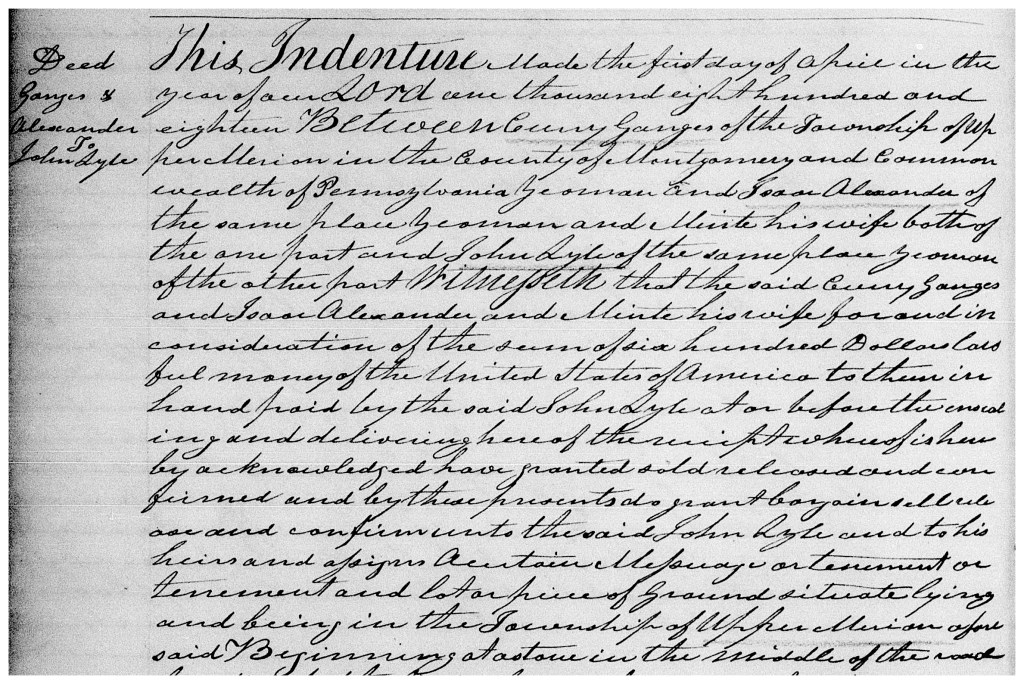 Deed
Ganges &
Alexander
To
John Lyle
This Indenture Made the first day of April in the
year of our LORD one thousand eight hundred and
eighteen Between Cuny Ganges of the Township of Up
per Merion in the County of Montgomery and Common
wealth of Pennsylvania Yeoman And Isaac Alexander of
the same place Yeoman and Minte his wife both of
the one part and John Lyle of the same place Yeoman
of the other part Witnesseth that the said Cuny Ganges
and Isaac Alexander and Minte his wife for and in
consideration of the sum of six hundred Dollars law
ful money of the United States of America to them in
hand paid by the said John Lyle at or before the enseal
ing and delivering here of the receipt whereof is here
by acknowledged have granted sold released and con
firmed and by these presents do grant bargain sell rele
ase and confirm unto the said John Lyle and to his
heirs and assigns A certain Messuage or tenement or
tenement and lot or piece of Ground situate lying
and being in the Township of Upper Merion afore
said Beginning at a stone in the middle of the road